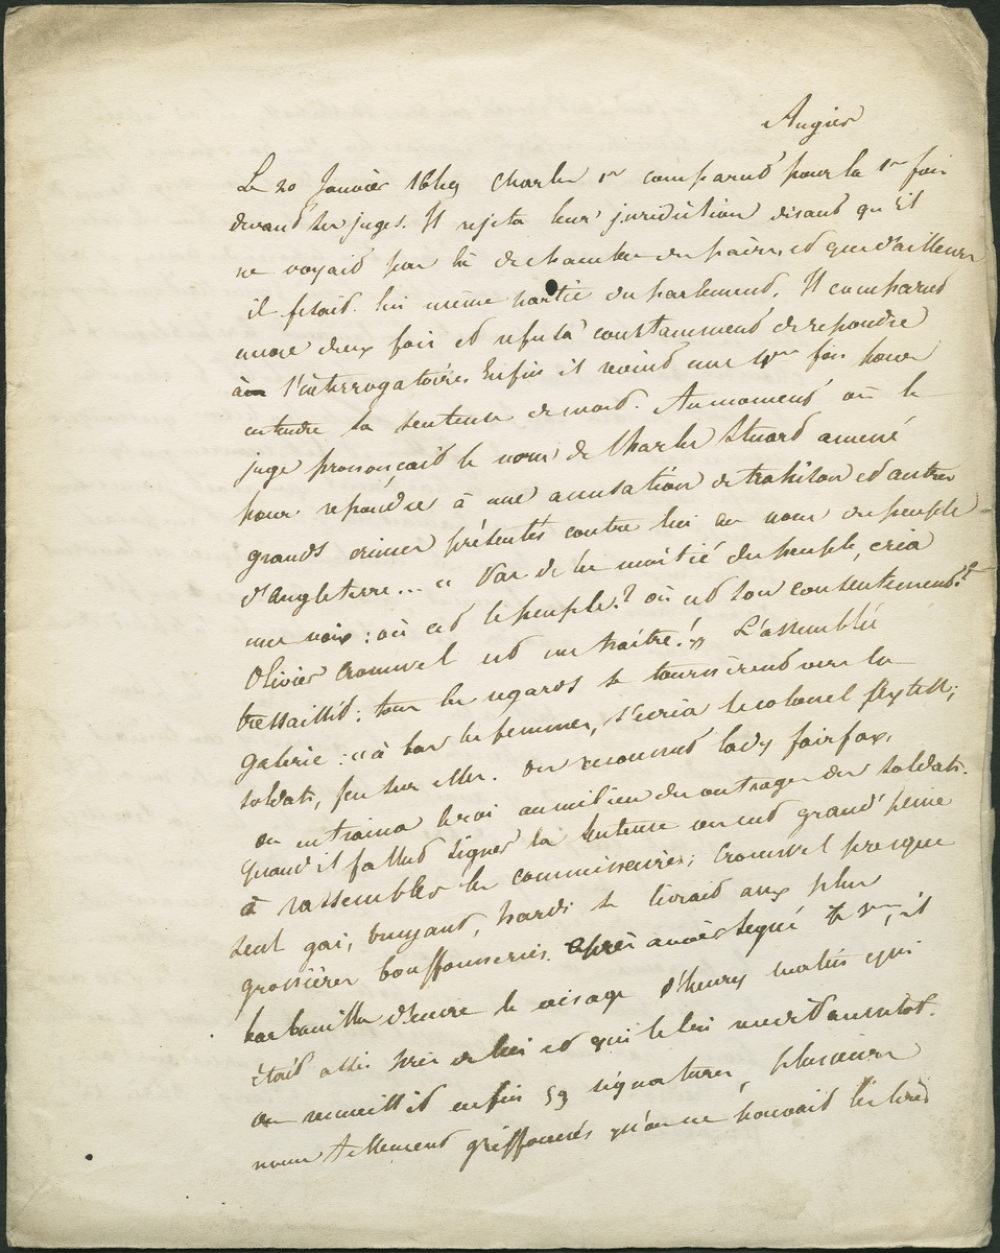 Augier
Le 20 Janvier 1649 Charles 1er comparut pour la 1re fois
devant ses juges. Il rejeta leur juridiction disant qu'il
ne voyait pas là de chambre des pairs, et que d'ailleurs
il était lui même partie du parlement. Il comparut
encore deux fois et refusa constamment de repondre
à l'interrogatoire. Enfin il revint une 4me fois pour
entendre sa sentence de mort. Au moment où le
juge prononçait le nom de Charles Stuard amené
pour repondre à une accusation de trahison et autres
grands crimes présentés contre lui au nom du peuple
d'angleterre... " Pas de la moitié du peuple, cria
une voix : où est le peuple? où est son consentement?
Olivier Cromwel est un traître! " L'assemblée
tressaillit; tous les regards se tournèrent vers la
galerie : " à bas les femmes, s'écria le colonel Axtell;
soldats, feu sur elles. On reconnut lady fairfax.
On entraina le roi au milieu des outrages des soldats.
Quand il fallut signer la sentence on eut grand' peine
à rassembler les commissaires; Cromwel presque
seul gai, bruyant, hardi se livrait aux plus
grossières bouffonneries. Après avoir signé le 3me, il
barbouilla d'encre le visage d'Henry Martin qui
était assis près de lui et qui le lui rendit aussitot.
On recueillit enfin 59 signatures, plusieurs
noms tellement griffonnés qu'on ne pouvait les lire